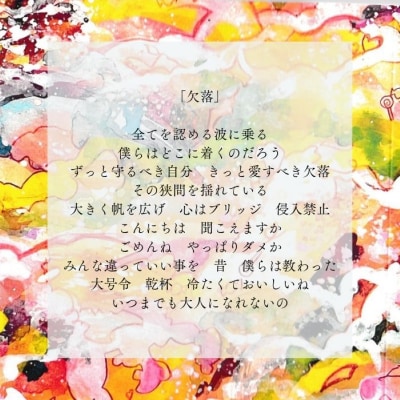 「欠落」
全てを認める波に乗る
僕らはどこに着くのだろう
ずっと守るべき自分　きっと愛すべき欠落
その狭間を揺れている
大きく帆を広げ　心はブリッジ　侵入禁止
こんにちは　聞こえますか
ごめんね　やっぱりダメか
みんな違っていい事を　昔　僕らは教わった
大号令　乾杯　冷たくておいしいね
いつまでも大人になれないの